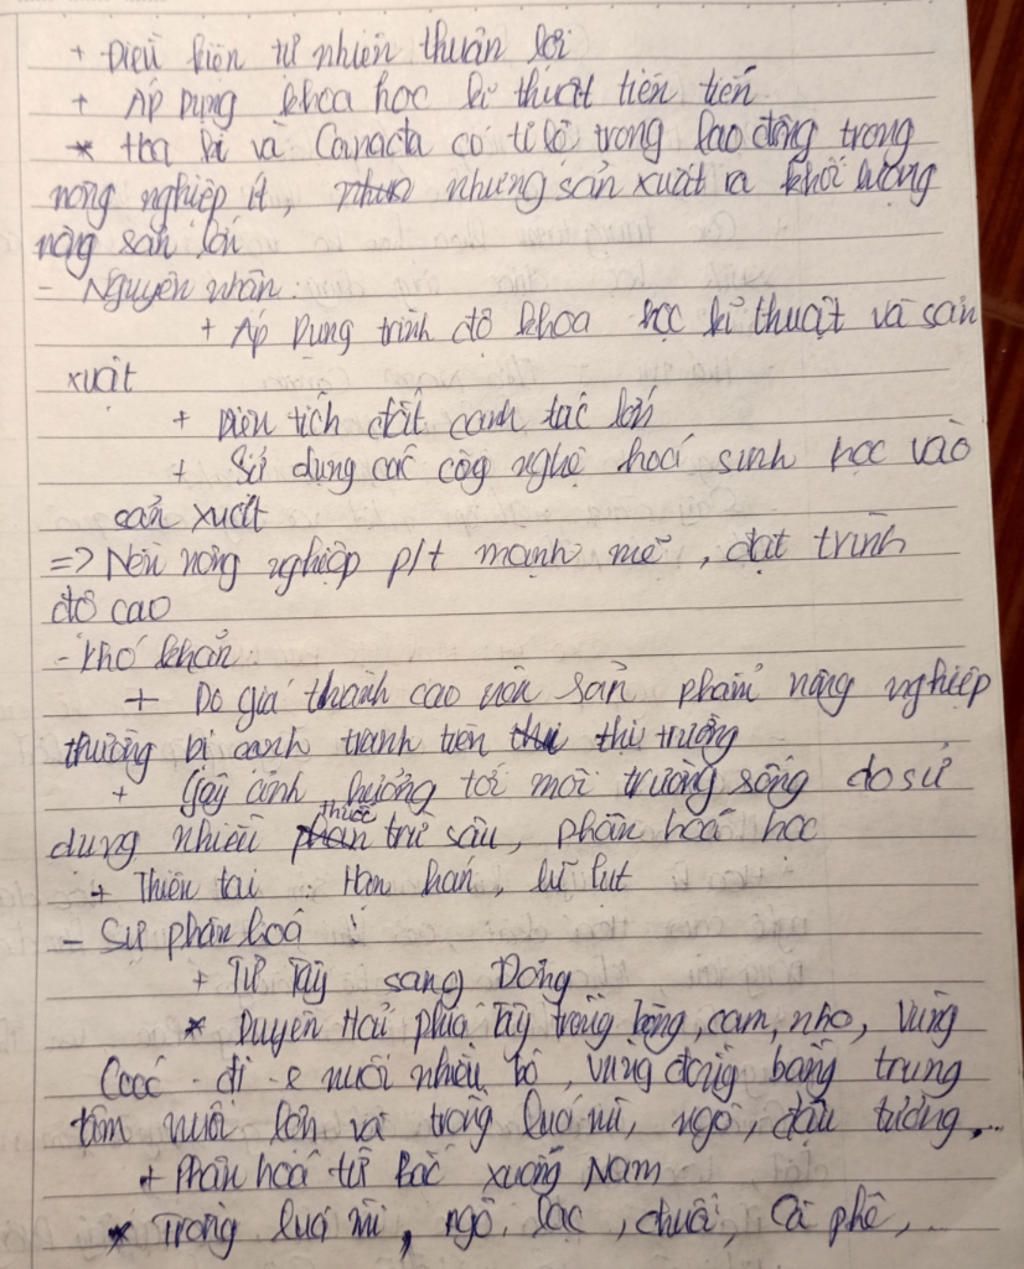 + Điều kiện tự nhiên thuận lợi
+ Áp dụng khoa học kĩ thuật tiên tiến
* Hoa kì và Canada có tỉ lệ trong lao động trong
nông nghiệp ít, nhưng sản xuất ra khối lượng
nông sản lớn
- Nguyên nhân:
+ Áp dụng trình độ khoa học kĩ thuật và sản
xuất
+ Diện tích đất canh tác lớn
+ Sử dụng các công nghệ hoá sinh học vào
sản xuất
=> Nền nông nghiệp p/t mạnh mẽ, đạt trình
độ cao
- Khó khăn:
+ Do giá thành cao nên sản phẩm nông nghiệp
thường bị cạnh tranh trên thị trường
+ Gây ảnh hưởng tới môi trường sống do sử
dụng nhiều thuốc trừ sâu, phân hoá học
+ Thiên tai: Hạn hán, lũ lụt
- Sự phân hoá:
+ Từ Tây sang Đông
* Duyên Hải phía Tây trồng bông, cam, nho, Vùng
Cooc-đi-e nuôi nhiều bò, vùng đồng bằng trung
tâm nuôi lợn và trồng lúa mì, ngô, đậu tương,...
+ Phân hoá từ Bắc xuống Nam
* Trồng lúa mì, ngô, lạc, chuối, Cà phê,...